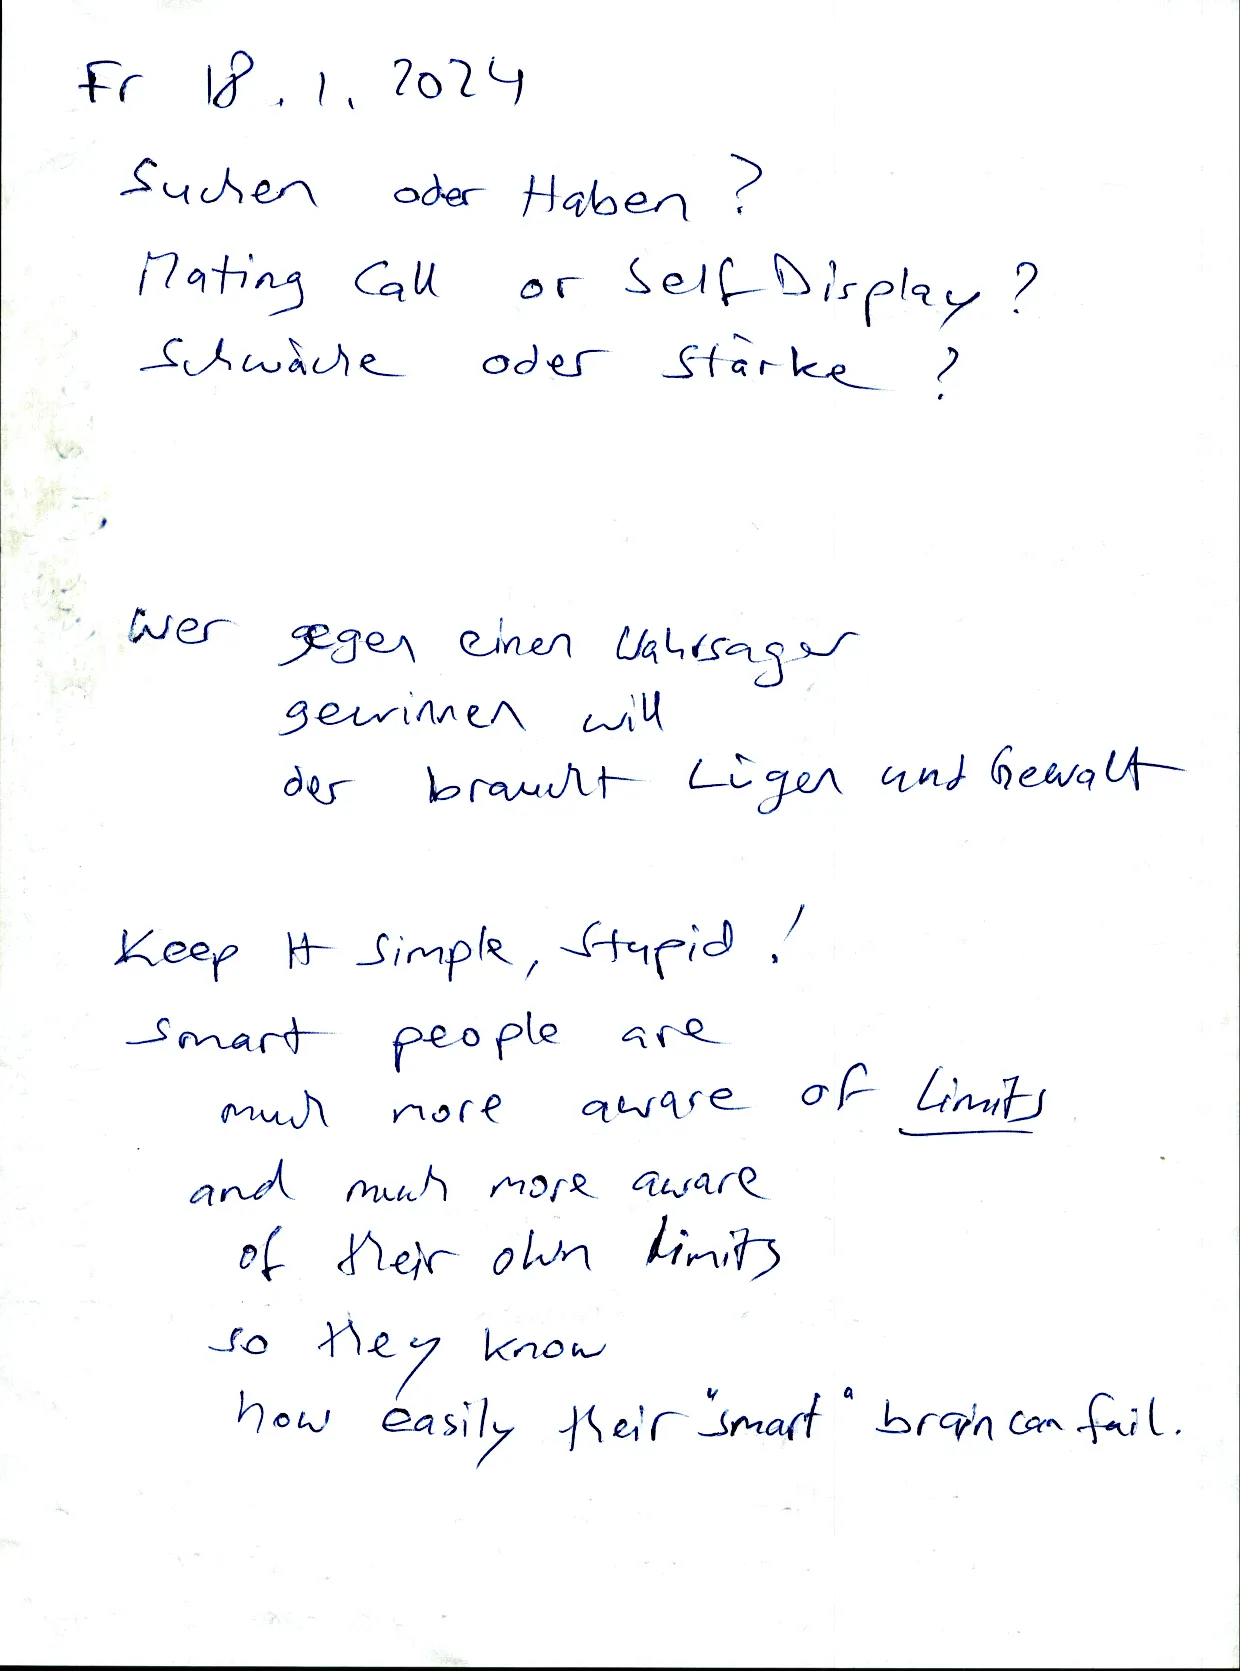 Fr 18.1.2024
Suchen oder Haben?
Mating Call or Self Display?
Schwäche oder Stärke?
Wer gegen einen Wahrsager
gewinnen will
der braucht Lügen und Gewalt
Keep It Simple, Stupid!
Smart people are
much more aware of Limits
and much more aware
of their own limits
so they know
how easily their "smart" brain can fail.